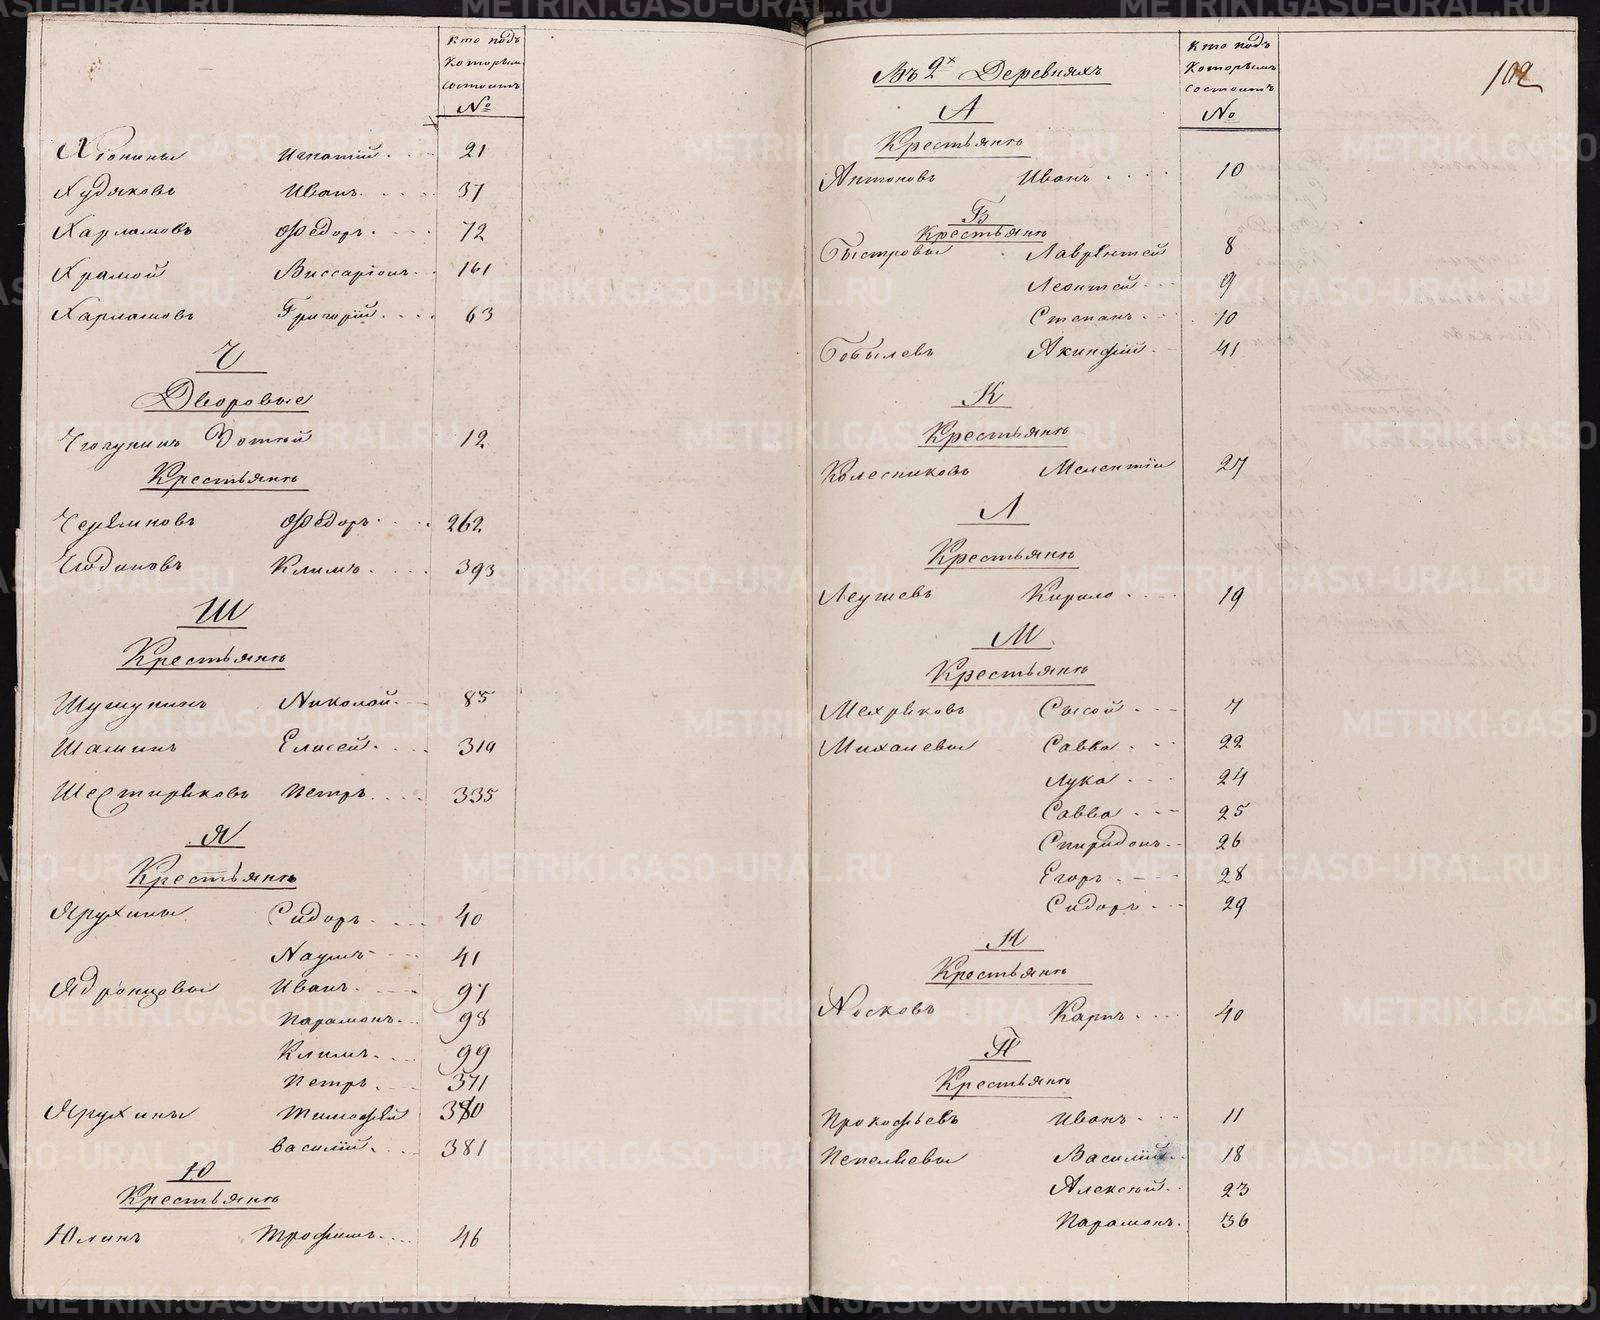 кто подъ
Которымъ
состоитъ
№
Хіонины Игнатій 21
Худяковъ Иванъ 37
Харламовъ Ѳедоръ 72
Храмой Виссаріонъ 161
Харламовъ Григорій 63
Ч
Дворовые
Чючунинъ Зотѣй 12
Крестьянѣ
Ѳедоръ 262
Чюдиновъ Климъ 393
Ш
Крестьянѣ
Шушунинъ Николай 85
Шаминъ Елисей 319
Шестириковъ Петръ 335
Я
Крестьянѣ
Яружины Сидоръ 40
Наумъ 41
Ядронцовы Иванъ 97
Парамонъ 98
Климъ 99
Петръ 371
Яружины Тимофѣй 380
Василій 381
Ю
Крестьянѣ
Юлинъ Трофимъ 46
Въ 2х Деревняхъ
кто подъ
Которымъ
состоитъ
№
102
А
Крестьянѣ
Антоновъ Иванъ 10
Б
Крестьянѣ
Быстровы Лаврѣнтей 8
Леонтей 9
Степанъ 10
Бобылевъ Акинфій 41
К
Крестьянѣ
Колесниковъ Мелентіи 27
Л
Крестьянѣ
Леушевъ Кирило 19
М
Крестьянѣ
Мехряковъ Сысой 7
Михалевы Савва 22
Лука 24
Савва 25
Спиридонъ 26
Егоръ 28
Сидоръ 29
Н
Крестьянѣ
Носковъ Карпъ 40
П
Крестьянѣ
Прокофьевъ Иванъ 11
Пепеляевы Василій 18
Алексѣй 23
Парамонъ 36
METRIKI.GASO-URAL.RU